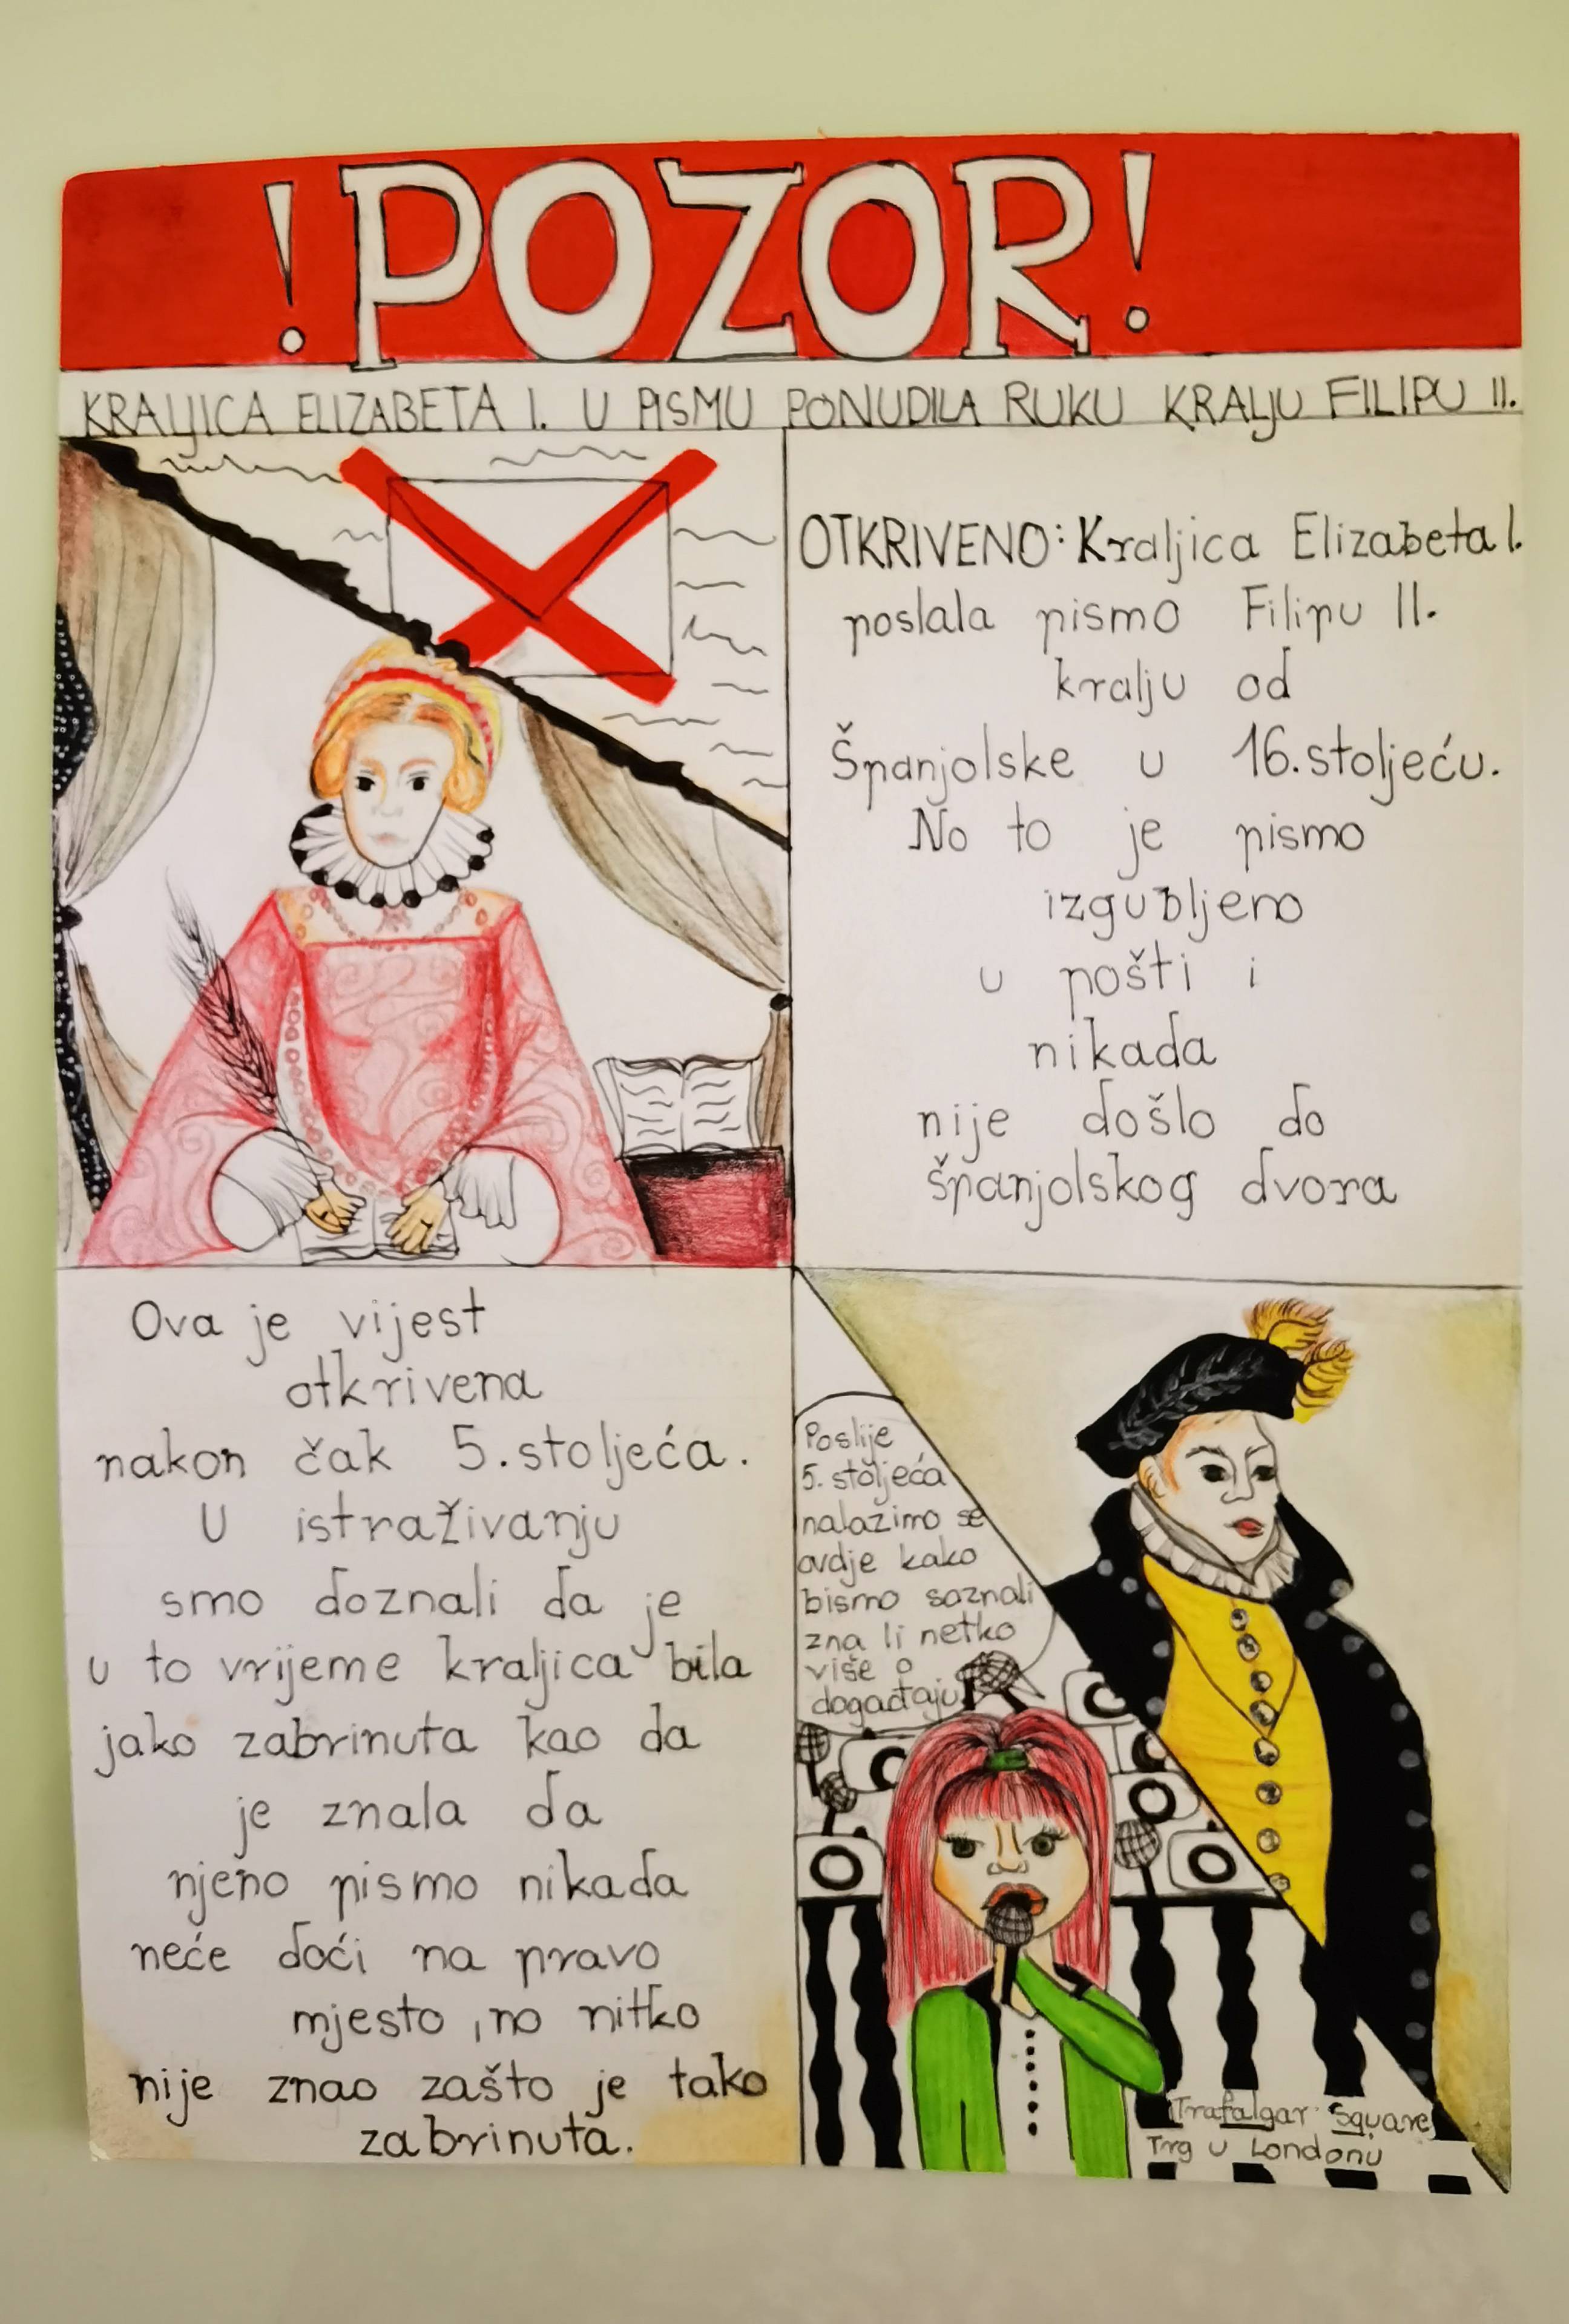 !POZOR!
KRALJICA ELIZABETA I. U PISMU PONUDILA RUKU KRALJU FILIPU II.
OTKRIVENO: Kraljica Elizabeta I.
poslala pismo Filipu II.
kralju od
Španjolske u 16.stoljeću.
No to je pismo
izgubljeno
u pošti i
nikada
nije došlo do
španjolskog dvora
Ova je vijest
otkrivena
nakon čak 5.stoljeća.
U istraživanju
smo doznali da je
u to vrijeme kraljica bila
jako zabrinuta kao da
je znala da
njeno pismo nikada
neće doći na pravo
mjesto, no nitko
nije znao zašto je tako
zabrinuta.
Poslije
5. stoljeća
nalazimo se
ovdje kako
bismo saznali
zna li netko
više o
događaju
Trafalgar Square
Trg u Londonu